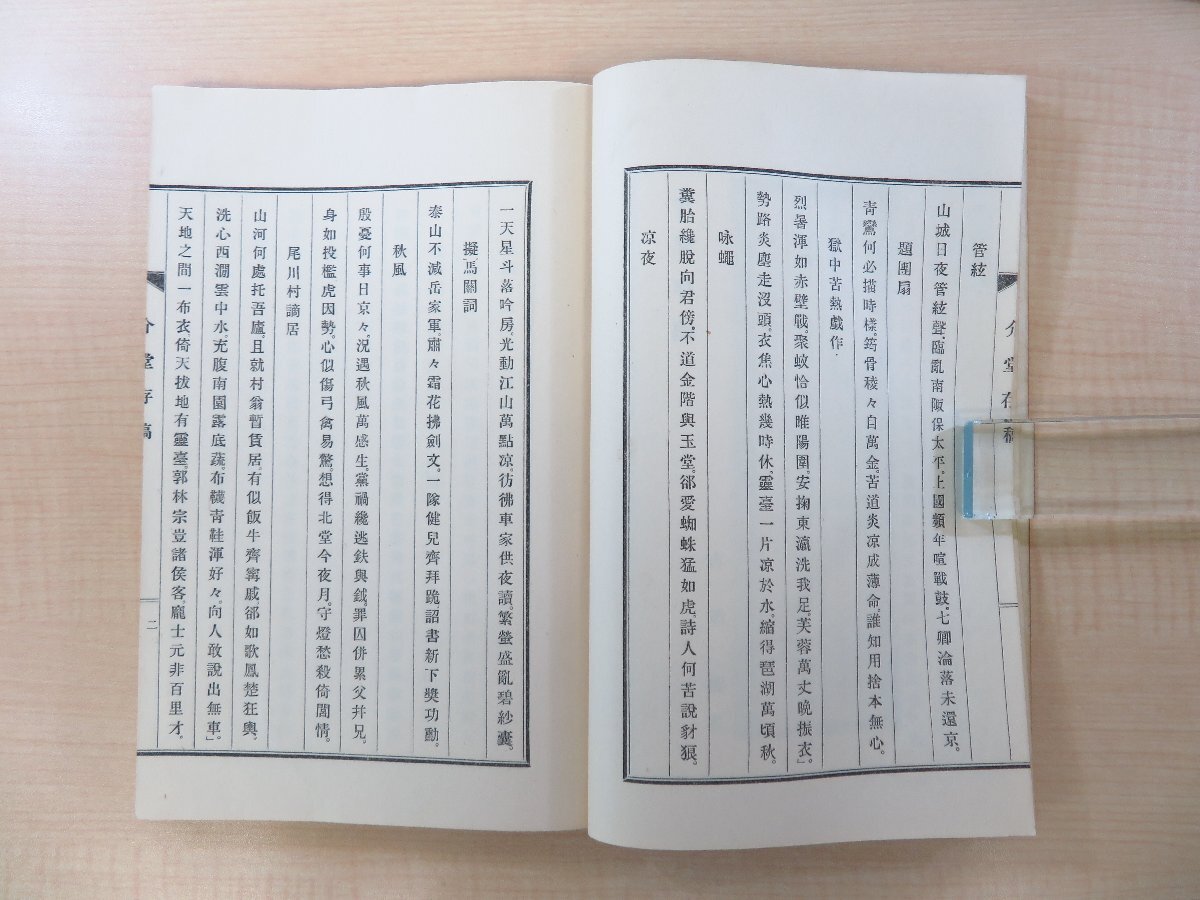 介堂存稿
管絃
山城日夜管絃聲。臨亂南阪保太平。上國頻年喧戰鼓。七卿淪落未還京。
題團扇
靑鸞何必描時樣。筠骨稜々自萬金。苦道炎凉成薄命。誰知用捨本無心。
獄中苦熱戲作
烈暑渾如赤壁戰。聚蚊恰似睢陽圍。安掬東瀛洗我足。芙蓉萬丈晩振衣」
勢路炎塵走沒頭。衣焦心熱幾時休。靈臺一片凉於水。縮得琵湖萬頃秋。
咏蠅
糞胎纔脫向君傍。不道金階與玉堂。郤愛蜘蛛猛如虎。詩人何苦說豺狼。
凉夜
一天星斗落吟房。光動江山萬點凉。彷彿車家供夜讀。繁螢盛亂碧紗囊。
擬馬關詞
泰山不減岳家軍。肅々霜花拂劍文。一隊健兒齊拜跪。詔書新下奬功勳。
秋風
殷憂何事日京々。況遇秋風萬感生。黨禍纔逃鈇與鉞。罪囚併累父幷兄。
身如投檻虎因勢。心似傷弓禽易驚。想得北堂今夜月。守燈愁殺倚閭情。
尾川村謫居
山河何處托吾廬。且就村翁暫賃居。有似飯牛齊寗戚。郤如歌鳳楚狂輿。
洗心西澗雲中水。充腹南園露底蔬。布襪靑鞋渾好々。向人敢說出無車」
天地之間一布衣。倚天拔地有靈臺。郭林宗豈諸侯客。龐士元非百里才。
介堂存稿
二